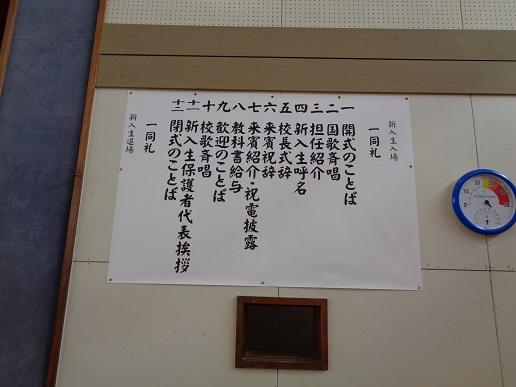 新入生入場
一同礼
一 開式のことば
二 国歌斉唱
三 担任紹介
四 新入生呼名
五 校長式辞
六 来賓祝辞
七 来賓紹介・祝電披露
八 教科書給与
九 歓迎のことば
十 校歌斉唱
十一 新入生保護者代表挨拶
十二 閉式のことば
一同礼
新入生退場